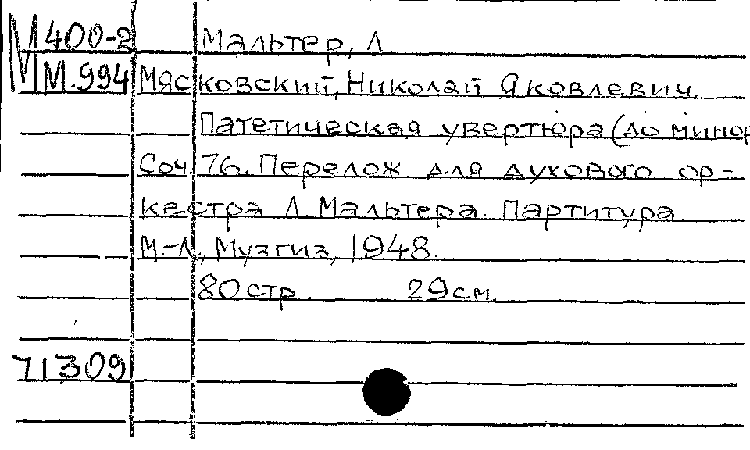 М 400-2 Мальтер, Л
М.994 Мясковский, Николай Яковлевич.
Патетическая увертюра (до минор
Соч. 76. Перелож для духового ор-
кестра Л Мальтера. Партитура
М.-Л., Музгиз, 1948.
80 стр. 29 см.
71309